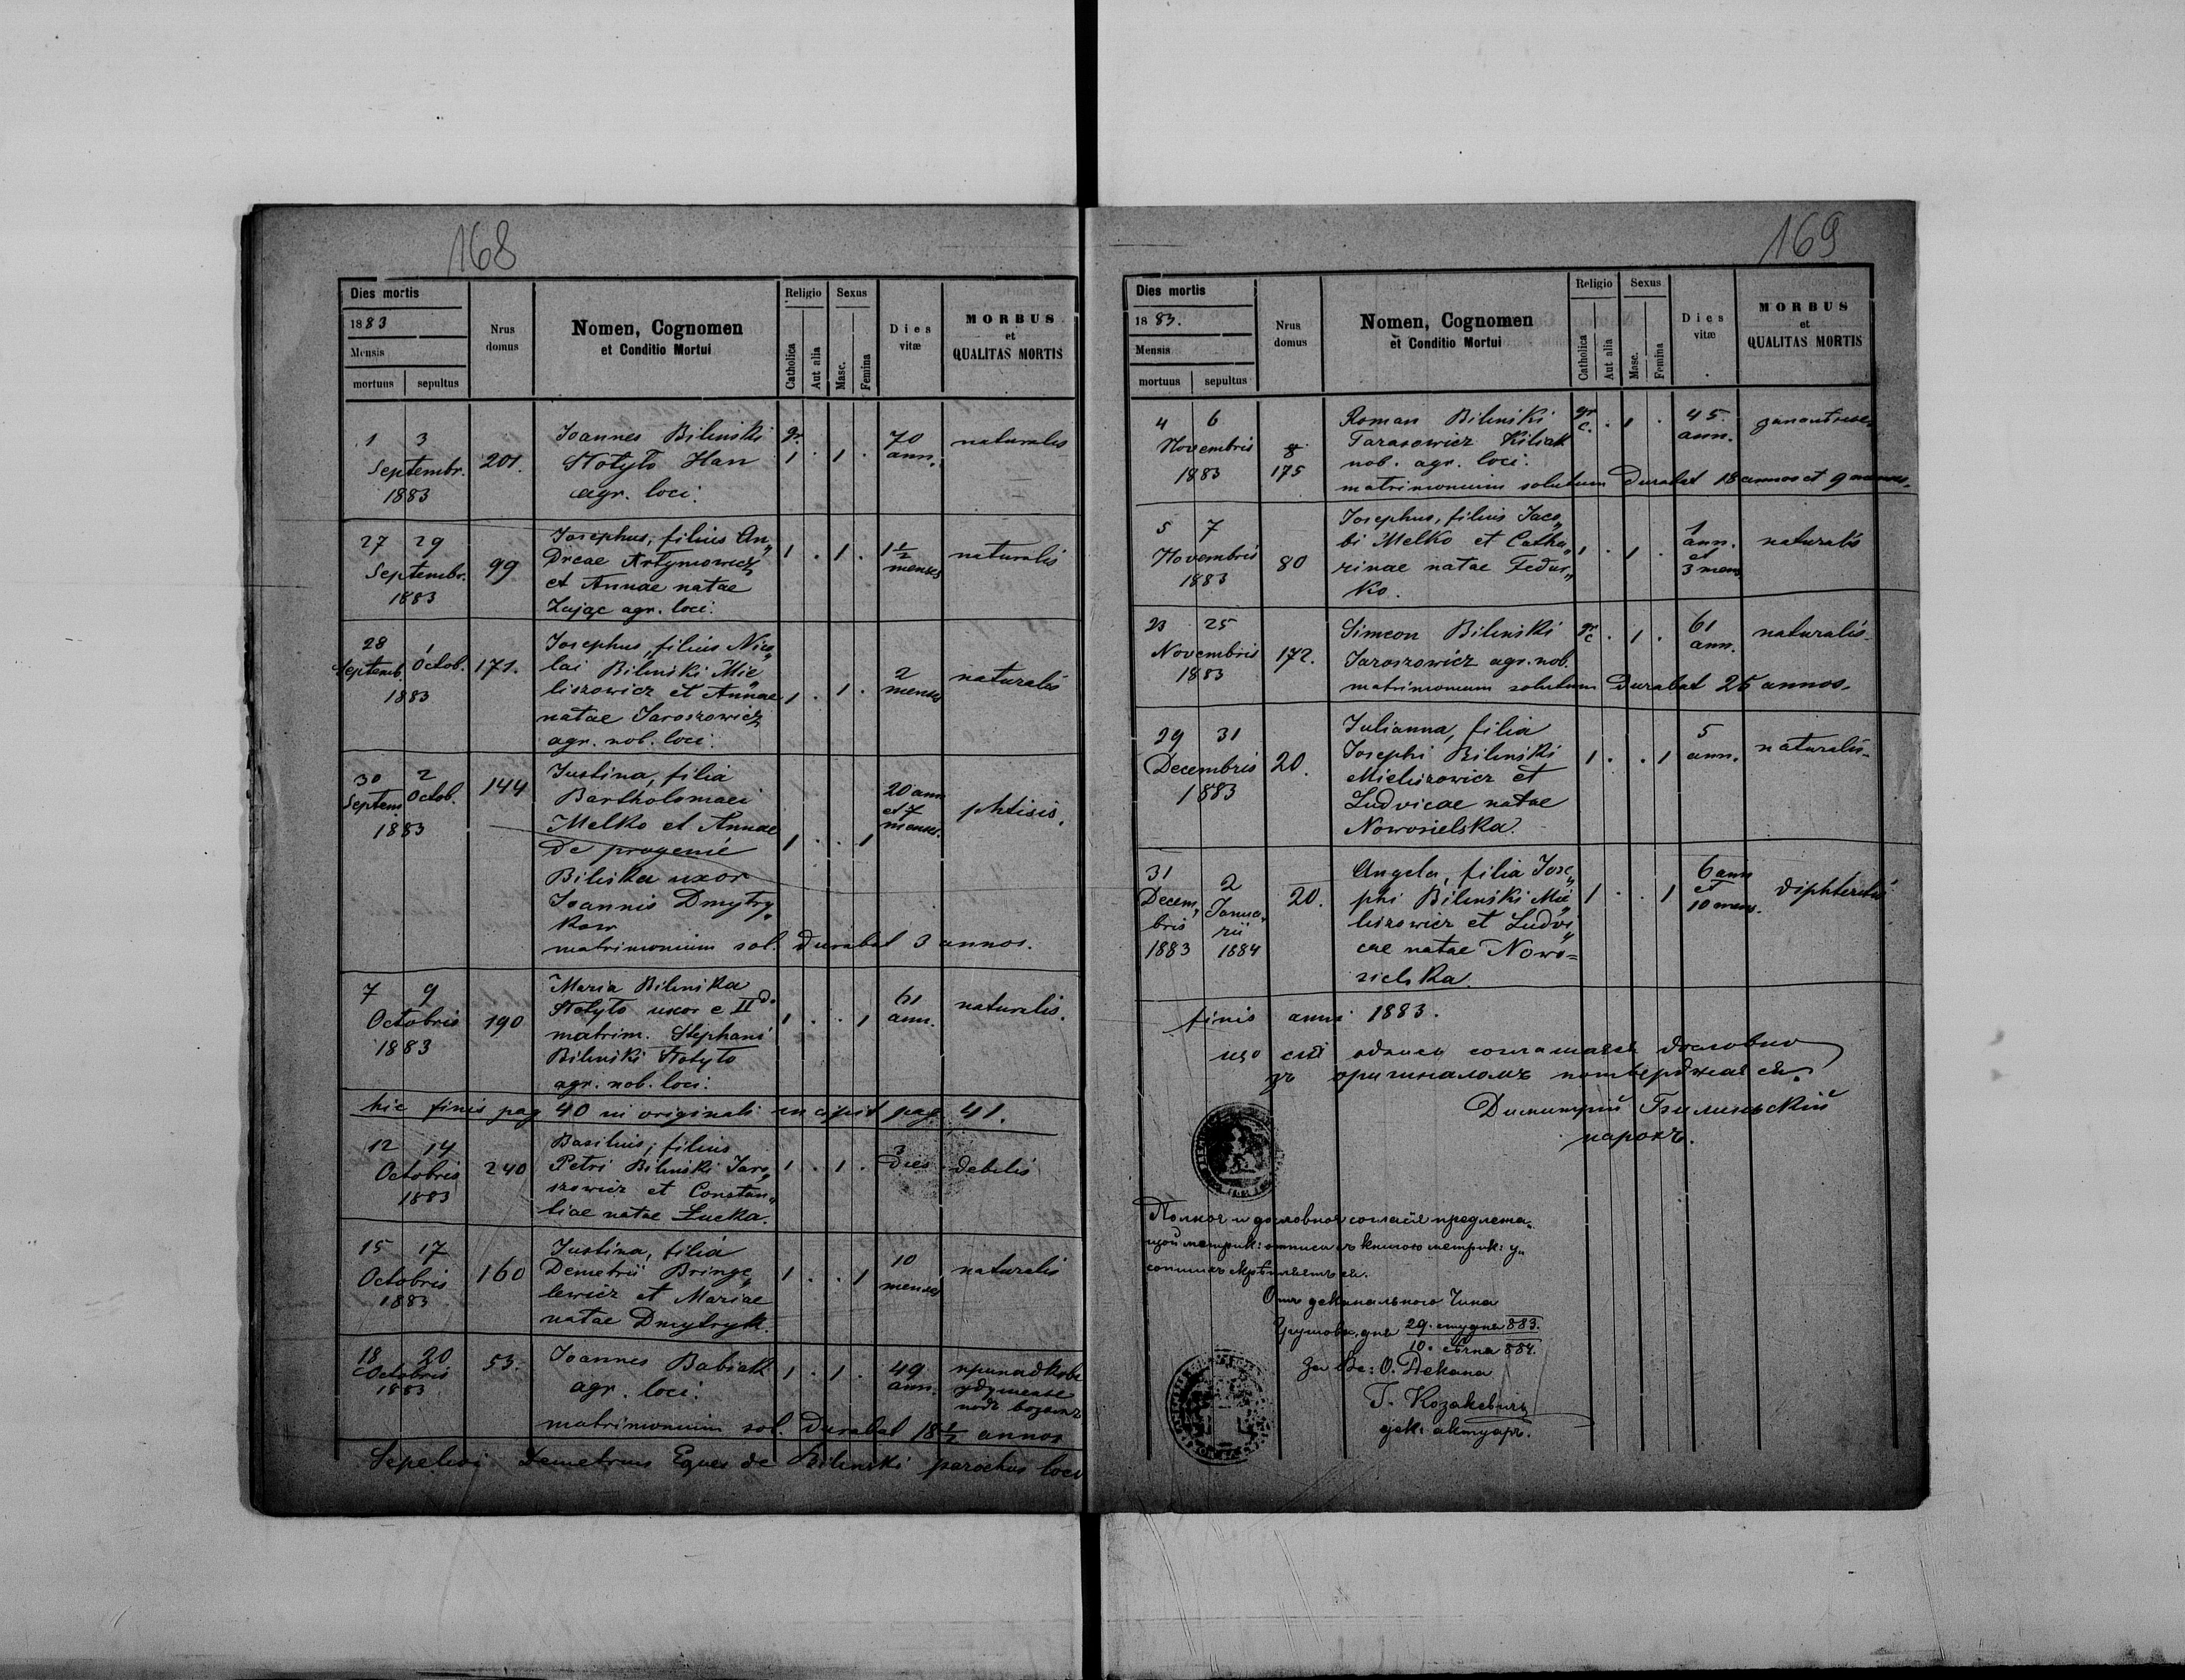 168
Dies mortis
1883
Mensis
mortuus sepultus
Nrus domus
Nomen, Cognomen
et Conditio Mortui
Religio
Catholica
Aut alia
Sexus
Masc.
Femina
Dies vitæ
MORBUS
et
QUALITAS MORTIS
1 3
Septembr.
1883
201.
Joannes Bilinski
Stotyło Han
agr. loci.
gr.
1 . 1 .
70
ann.
naturalis
27 29
Septembr.
1883
99
Josephus, filius An„
dreae Artymowicz
et Annae natae
Zając agr. loci.
1 . 1 .
1 1/2
menses
naturalis
28 1
Septemb. Octob.
1883
171.
Josephus, filius Nico„
lai Bilinski Mie„
liszowicz et Annae
natae Jaroszowicz
agr. nob. loci.
1 . 1 .
2
menses
naturalis
30 2
Septem Octob.
1883
144
Justina, filia
Bartholomaei
Melko et Annae
de progenie
Biliska uxor
Joannis Dmytry„
kow
matrimonium sol. durabat 3 annos.
1 . . 1
20 ann
et 7
menses.
phtisis.
7 9
Octobris
1883
190
Maria Bilinska
Stotyło uxor e II do
matrim. Stephani
Bilinski Stotyło
agr. nob. loci.
1 . . 1
61
ann.
naturalis.
hic finis pag 40 in originali incipit pag 41.
12 14
Octobris
1883
240
Basilius, filius
Petri Bilinski Jaro„
szowicz et Constan„
tiae natae Łucka.
1 . 1 .
3
dies
debilis
15 17
Octobris
1883
160
Justina, filia
Demetrii Bringe„
lewicz et Mariae
natae Dmytryk.
1 . . 1
10
menses
naturalis
18 20
Octobris
1883
53.
Joannes Babiak
agr. loci.
matrimonium sol. durabat 18 1/2 annos
1 . 1 .
49
ann.
припадкове
подъ возомъ
Sepelivi Demetrius Eques de Bilinski parochus loci
169
Dies mortis
1883.
Mensis
mortuus sepultus
Nrus domus
Nomen, Cognomen
et Conditio Mortui
Religio
Catholica
Aut alia
Sexus
Masc.
Femina
Dies vitæ
MORBUS
et
QUALITAS MORTIS
4 6
Novembris
1883
8
175
Roman Bilinski
Tarasowicz Kiliak
nob. agr. loci.
matrimonium solutum durabat 18 annos et 9 menses.
gr.
c. . 1 .
45.
ann.
5 7
Novembris
1883
80
Josephus, filius Jaco„
bi Melko et Catha„
rinae natae Fedur„
ko.
1 . 1 .
1
ann.
et
3 mens
naturalis
23 25
Novembris
1883
172.
Simeon Bilinski
Jaroszowicz agr. nob.
matrimonium solutum durabat 25 annos.
gr.
c . 1 .
61
ann.
naturalis.
29 31
Decembris
1883
20.
Julianna, filia
Josephi Bilinski
Mieliszowicz et
Ludvicae natae
Nowosielska.
1 . . 1
5
ann.
naturalis.
31 2
Decem„ Janua„
bris rii
1883 1884
20.
Angela, filia Jose„
phi Bilinski Mie„
liszowicz et Ludvi„
cae natae Nowo=
sielska.
1 . . 1
6 ann
et
10 mens.
diphteritis
finis anni 1883.
що сей одписъ соглашаеся дословно
зъ оригиналомъ потверджае ся.
Димитрій Билиньскій
парохъ.
Полное и дословное согласіе предлежа„
щой метрик: отписи съ книгою метрик: у„
Отъ деканального Чина
дня 29. студня 883.
10. січня 884.
За Вс: О. Декана
Г. Козакевичъ
дек: актуаръ.